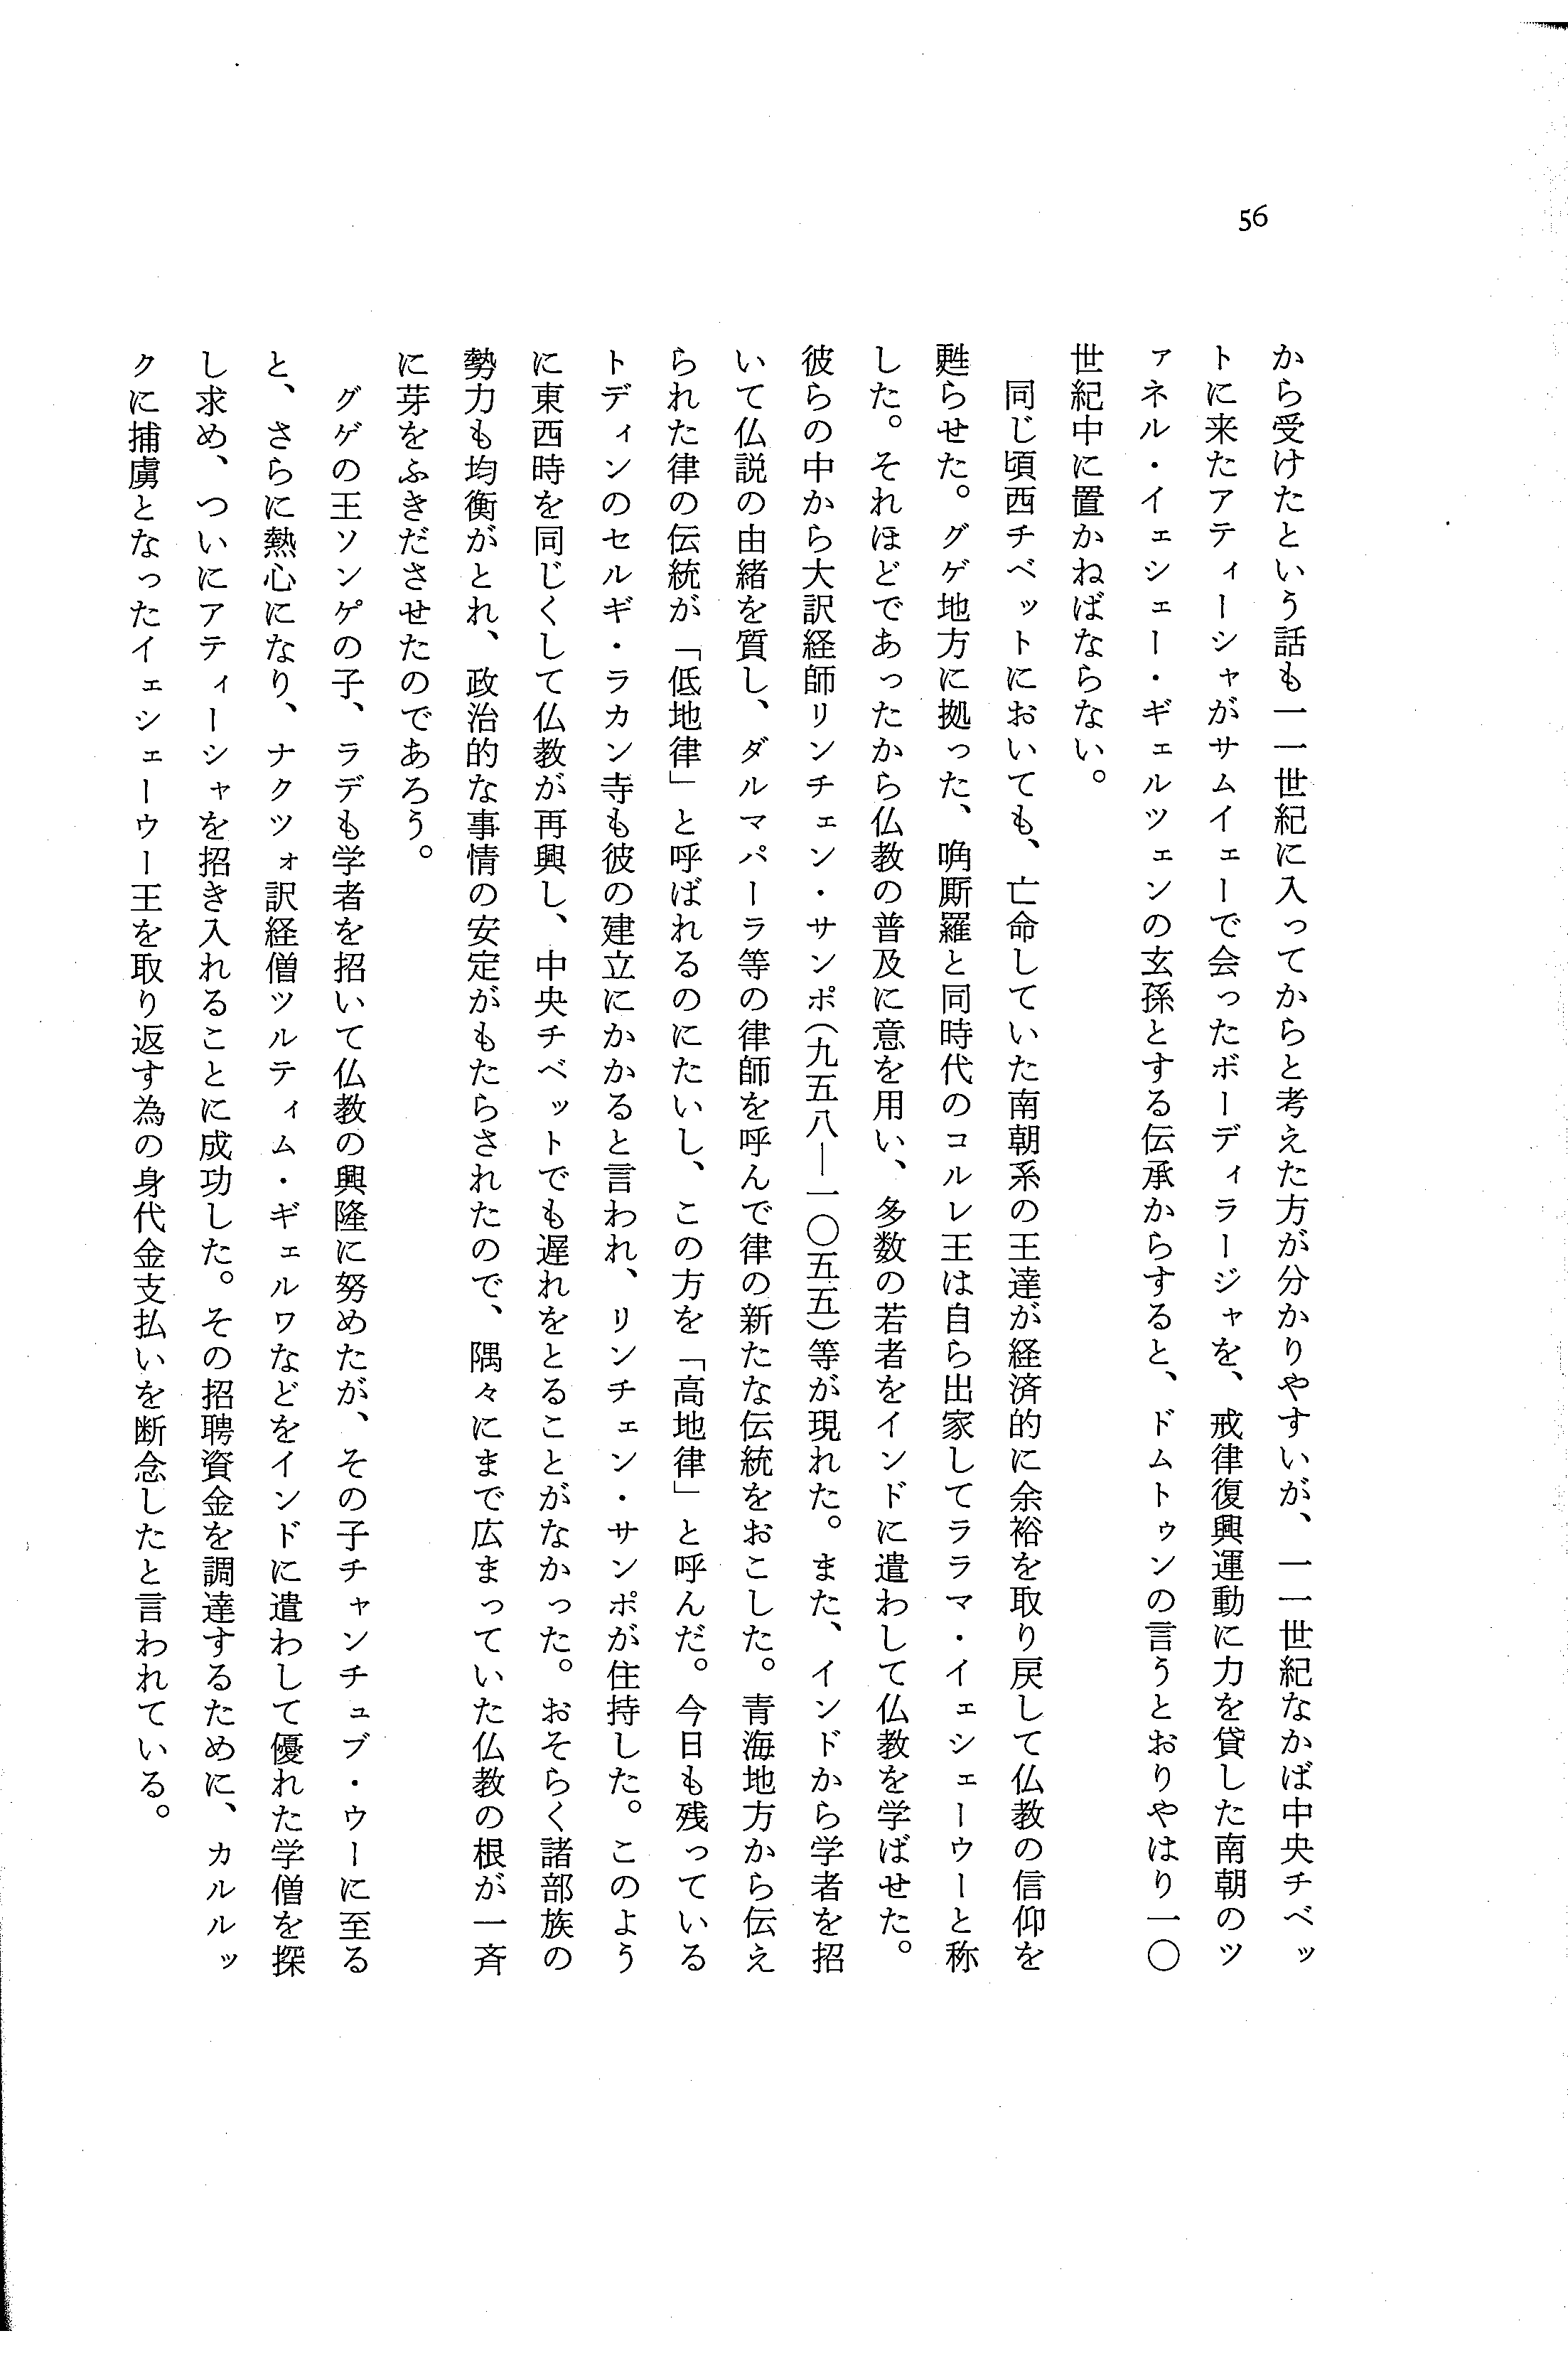 56
から受けたという話も一一世紀に入ってからと考えた方が分かりやすいが、一一世紀なかば中央チベッ
トに来たアティーシャがサムイェーで会ったボーディラージャを、戒律復興運動に力を貸した南朝のツ
ァネル・イェシェー・ギェルツェンの玄孫とする伝承からすると、ドムトゥンの言うとおりやはり一〇
世紀中に置かねばならない。
同じ頃西チベットにおいても、亡命していた南朝系の王達が経済的に余裕を取り戻して仏教の信仰を
甦らせた。グゲ地方に拠った、唃厮羅と同時代のコルレ王は自ら出家してララマ・イェシェーウーと称
した。それほどであったから仏教の普及に意を用い、多数の若者をインドに遣わして仏教を学ばせた。
彼らの中から大訳経師リンチェン・サンポ(九五八―一〇五五)等が現れた。また、インドから学者を招
いて仏説の由緒を質し、ダルマパーラ等の律師を呼んで律の新たな伝統をおこした。青海地方から伝え
られた律の伝統が「低地律」と呼ばれるのにたいし、この方を「高地律」と呼んだ。今日も残っている
トディンのセルギ・ラカン寺も彼の建立にかかると言われ、リンチェン・サンポが住持した。このよう
に東西時を同じくして仏教が再興し、中央チベットでも遅れをとることがなかった。おそらく諸部族の
勢力も均衡がとれ、政治的な事情の安定がもたらされたので、隅々にまで広まっていた仏教の根が一斉
に芽をふきださせたのであろう。
グゲの王ソンゲの子、ラデも学者を招いて仏教の興隆に努めたが、その子チャンチュブ・ウーに至る
と、さらに熱心になり、ナクツォ訳経僧ツルティム・ギェルワなどをインドに遣わして優れた学僧を探
し求め、ついにアティーシャを招き入れることに成功した。その招聘資金を調達するために、カルルッ
クに捕虜となったイェシェーウー王を取り返す為の身代金支払いを断念したと言われている。